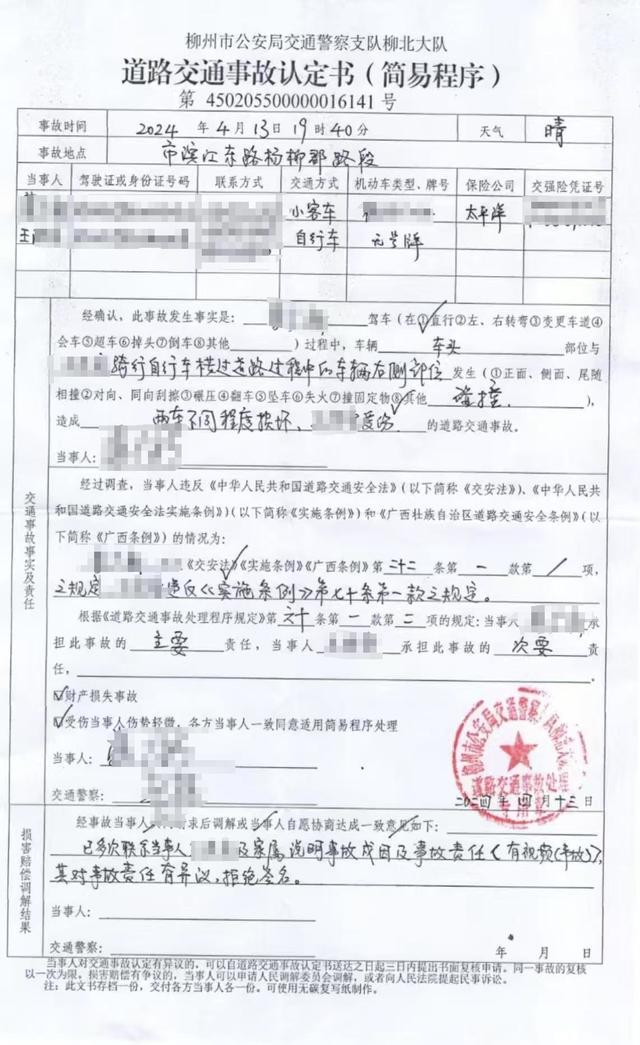 柳州市公安局交通警察支队柳北大队
道路交通事故认定书（简易程序）
第 450205500000016141 号
事故时间 2024 年 4 月 13 日 19 时 40 分 天气 晴
事故地点 市滨江东路杨柳郡路段
当事人 驾驶证或身份证号码 联系方式 交通方式 机动车类型、牌号 保险公司 交强险凭证号
小客车 太平洋
王 自行车 无号牌
交通事故事实及责任
经确认，此事故发生事实是： 驾车（在①直行②左、右转弯③变更车道④
会车⑤超车⑥掉头⑦倒车⑧其他 ）过程中，车辆 车头 部位与
骑行自行车横过道路过程中的车辆右侧部位 发生（①正面、侧面、尾随
相撞②对向、同向刮擦③碾压④翻车⑤坠车⑥失火⑦撞固定物⑧其他 碰撞 ），
造成 两车不同程度损坏、 的道路交通事故。
当事人：
经过调查，当事人违反《中华人民共和国道路交通安全法》（以下简称《交安法》）、《中华人民共
和国道路交通安全法实施条例》）（以下简称《实施条例》）和《广西壮族自治区道路交通安全条例》（以
下简称《广西条例》）的情况为：
《交安法》《实施条例》《广西条例》第 二十二 条第 一 款第 / 项，
之规定 违反《实施条例》第七十条第一款之规定。
根据《道路交通事故处理程序规定》第 六十 条第 一 款第 二 项的规定：当事人 承
担此事故的 主要 责任，当事人 承担此事故的 次要 责
任，
☑财产损失事故
☑受伤当事人伤势轻微，各方当事人一致同意适用简易程序处理
当事人：
交通警察：
二〇二四年四月十三日
柳州市公安局交通警察支队柳北大队
道路交通事故处理
专用章
损害赔偿调解结果
经事故当事人 请求后调解或当事人自愿协商达成一致意见如下：
已多次联系当事人 及家属说明事故成因及事故责任（有视频（事故）），
其对事故责任有异议，拒绝签名。
当事人：
交通警察： 年 月 日
当事人对交通事故认定有异议的，可以自道路交通事故认定书送达之日起三日内提出书面复核申请。同一事故的复核
以一次为限，损害赔偿有争议的，当事人可以申请人民调解委员会调解，或者向人民法院提起民事诉讼。
注：此文书存档一份，交付各方当事人各一份。可使用无碳复写纸制作。